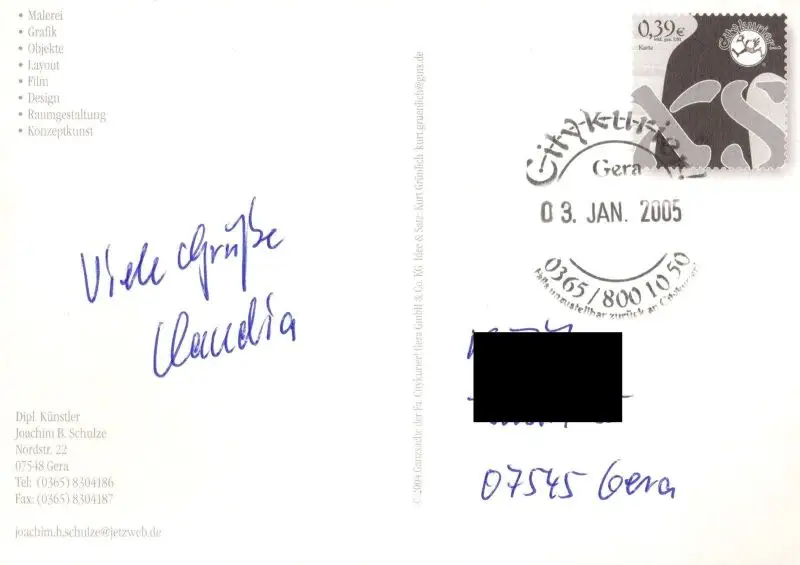 • Malerei
• Grafik
• Objekte
• Layout
• Film
• Design
• Raumgestaltung
• Konzeptkunst
Viele Grüße
Claudia
Dipl. Künstler
Joachim B. Schulze
Nordstr. 22
07548 Gera
Tel: (0365) 8304186
Fax: (0365) 8304187
joachim.h.schulze@jetzweb.de
© 2004 Ganzsache der Fa. Citykurier! Gera GmbH & Co. KG Idee & Satz: Kurt Grünlich kurt.gruenlich@gmx.de
0,39€
Karte
Citykurier!
KS
Citykurier!
Gera
03. JAN. 2005
0365/800 10 50
Falls unzustellbar zurück an Citykurier!
07545 Gera